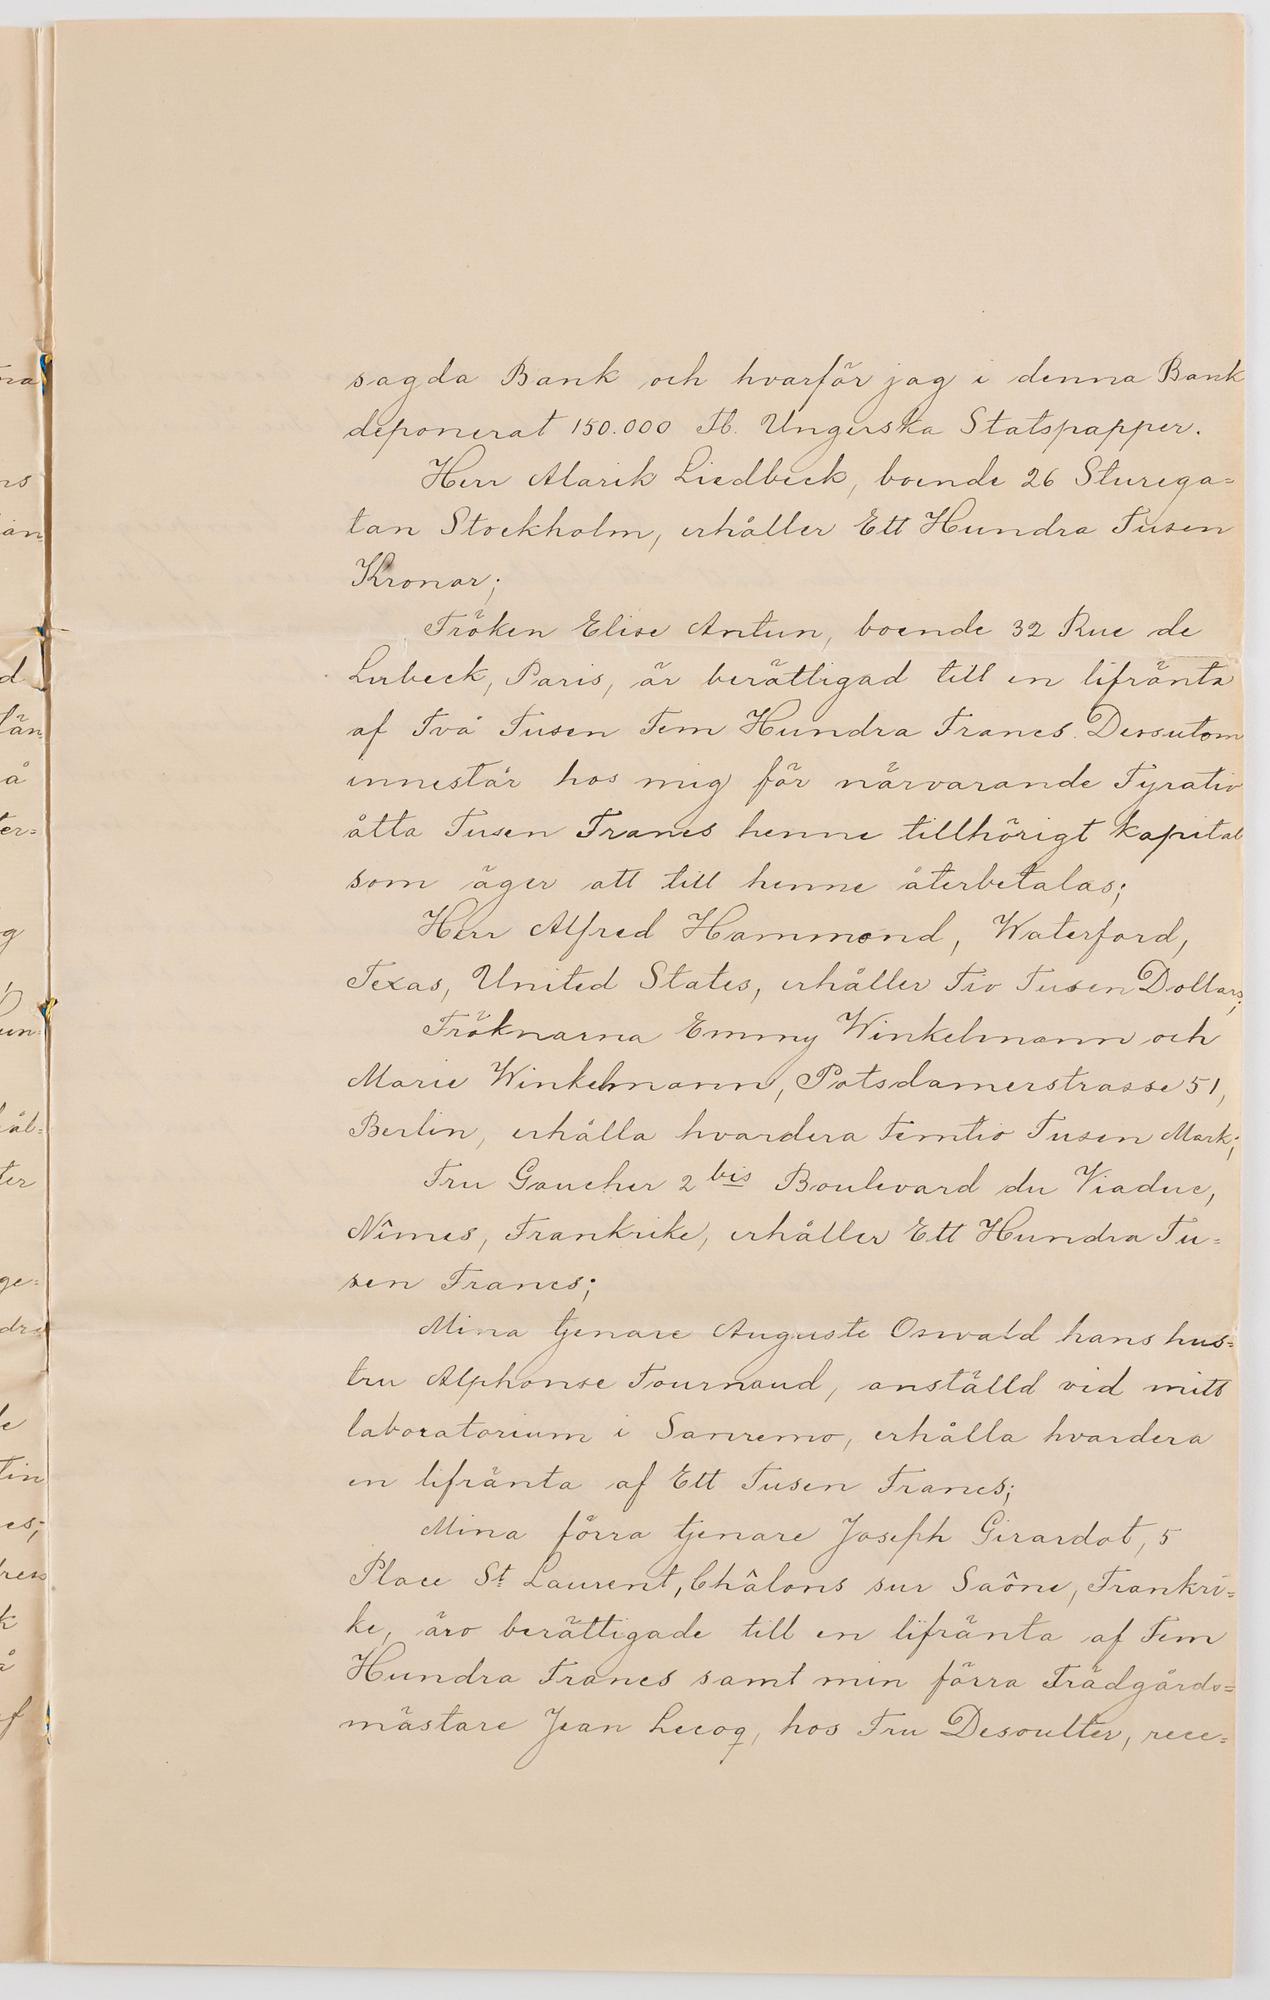 sagda Bank och hvarför jag i denna Bank
deponerat 150.000 Fl. Ungerska Statspapper.
Herr Alarik Liedbeck, boende 26 Sturega=
tan Stockholm, erhåller Ett Hundra Tusen
Kronor;
Fröken Elise Antun, boende 32 Rue de
Lubeck, Paris, är berättigad till en lifränta
af Två Tusen Fem Hundra Francs. Dessutom
innestår hos mig för närvarande Fyratio
åtta Tusen Francs henne tillhörigt kapital
som äger att till henne återbetalas;
Herr Alfred Hammond, Waterford,
Texas, United States, erhåller Tio Tusen Dollars;
Fröknarna Emmy Winkelmann och
Marie Winkelmann, Potsdamerstrasse 51,
Berlin, erhålla hvardera Femtio Tusen Mark;
Fru Gaucher 2 bis Boulevard du Viaduc,
Nîmes, Frankrike, erhåller Ett Hundra Tu=
sen Francs;
Mina tjenare Auguste Oswald hans hus=
tru Alphonse Tournaud, anställd vid mitt
laboratorium i Sanremo, erhålla hvardera
en lifränta af Ett Tusen Francs;
Mina förra tjenare Joseph Girardot, 5
Place St. Laurent, Châlons sur Saône, Frankri=
ke, äro berättigade till en lifränta af Fem
Hundra Francs samt min förra Trädgårds=
mästare Jean Lecoq, hos Fru Desoutter, rece=